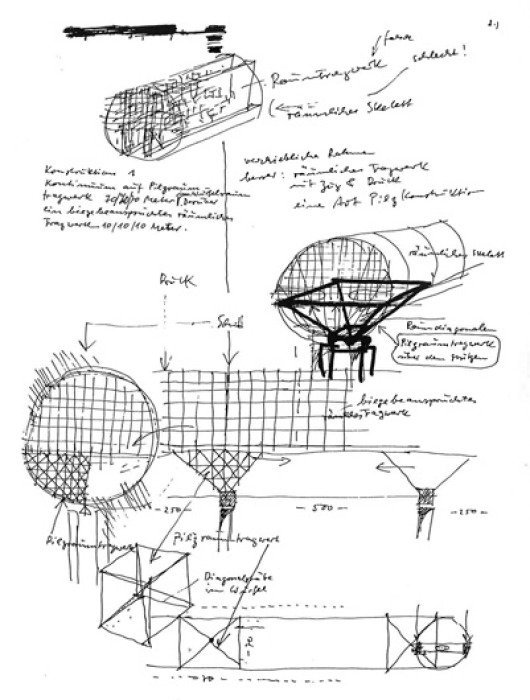 falsch
schlecht!
Raumtragwerk
räumliches Skelett
verschiebliche Rahmen
besser: räumliches Tragwerk
mit Zug & Druck
eine Art Pilz/Konstruktion
Konstruktion 1
Kontinuum auf Pilzraum
tragwerk
ein biegebeanspruchtes räumliches
Tragwerk 10/10/10 Meter.
räumliches Skelett
Druck
Schnitt
Raumdiagonalen
Pilzraumtragwerk
über den Stützen
biegebeanspruchtes
-250-
-500-
-250-
Pilzraumtragwerk
Pilzraumtragwerk
Diagonalstäbe
im Würfel